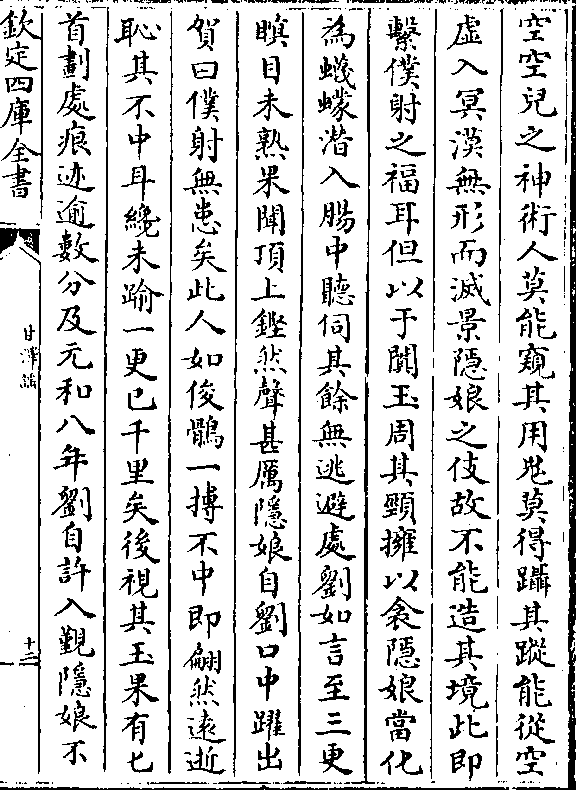 空空兒之神術人莫能窺其用鬼莫得躡其蹤能從空
虛入冥漠無形而滅景隱娘之伎故不能造其境此即
繫僕射之福耳但以于闐玉周其頸擁以衾隱娘當化
為蠛蠓潜入腸中聽伺其餘無逃避處劉如言至三更
瞑目未熟果聞頂上鏗然聲甚厲隱娘自劉口中躍出
賀曰僕射無恙矣此人如俊鶻一摶不中即翩然遠逝
恥其不中耳纔未踰一更已千里矣後視其玉果有匕
首劃處痕迹逾數分及元和八年劉自許入覲隱娘不
欽定四庫全書
甘澤謡
十二